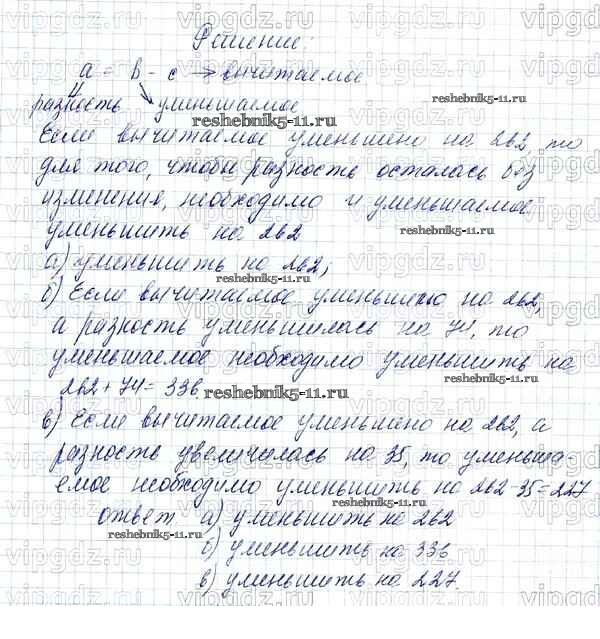 Решение:
a = b - c → вычитаемое
разность уменьшаемое
Если вычитаемое уменьшено на 262, то
для того, чтобы разность осталась без
изменения, необходимо и уменьшаемое
уменьшить на 262
а) уменьшить на 262;
б) Если вычитаемое уменьшено на 262,
а разность уменьшилась на 74, то
уменьшаемое необходимо уменьшить на
262 + 74 = 336
в) Если вычитаемое уменьшено на 262, а
разность увеличилась на 35, то уменьша-
емое необходимо уменьшить на 262-35=227
ответ а) уменьшить на 262
б) уменьшить на 336
в) уменьшить на 227.
reshebnik5-11.ru
reshebnik5-11.ru
reshebnik5-11.ru
reshebnik5-11.ru
reshebnik5-11.ru
reshebnik5-11.ru
reshebnik5-11.ru
reshebnik5-11.ru
vipgdz.ru